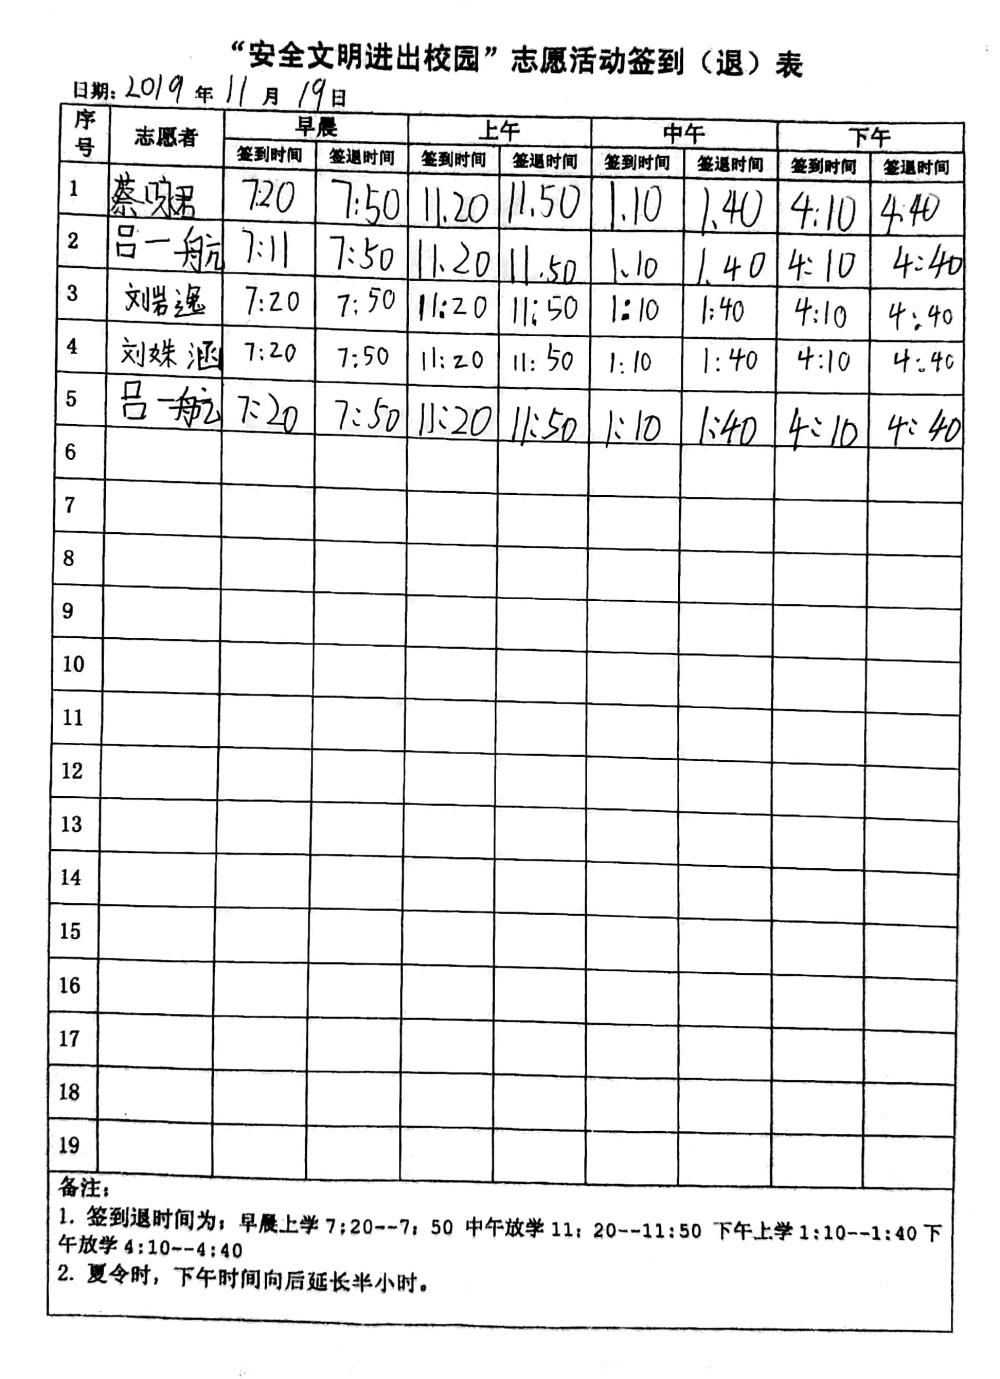 “安全文明进出校园”志愿活动签到（退）表
日期：2019年11月19日
序号 志愿者 早晨 上午 中午 下午
签到时间 签退时间 签到时间 签退时间 签到时间 签退时间 签到时间 签退时间
1 蔡 君 7:20 7:50 11.20 11.50 1.10 1.40 4:10 4:40
2 吕一航 7:11 7:50 11.20 11.50 1.10 1.40 4:10 4:40
3 刘岩逸 7:20 7:50 11:20 11:50 1:10 1:40 4:10 4:40
4 刘姝涵 7:20 7:50 11:20 11:50 1:10 1:40 4:10 4:40
5 吕一航 7:20 7:50 11:20 11:50 1:10 1:40 4:10 4:40
6
7
8
9
10
11
12
13
14
15
16
17
18
19
备注：
1. 签到退时间为：早晨上学 7:20--7：50 中午放学 11：20--11:50 下午上学 1:10--1:40 下
午放学 4:10--4:40
2. 夏令时，下午时间向后延长半小时。